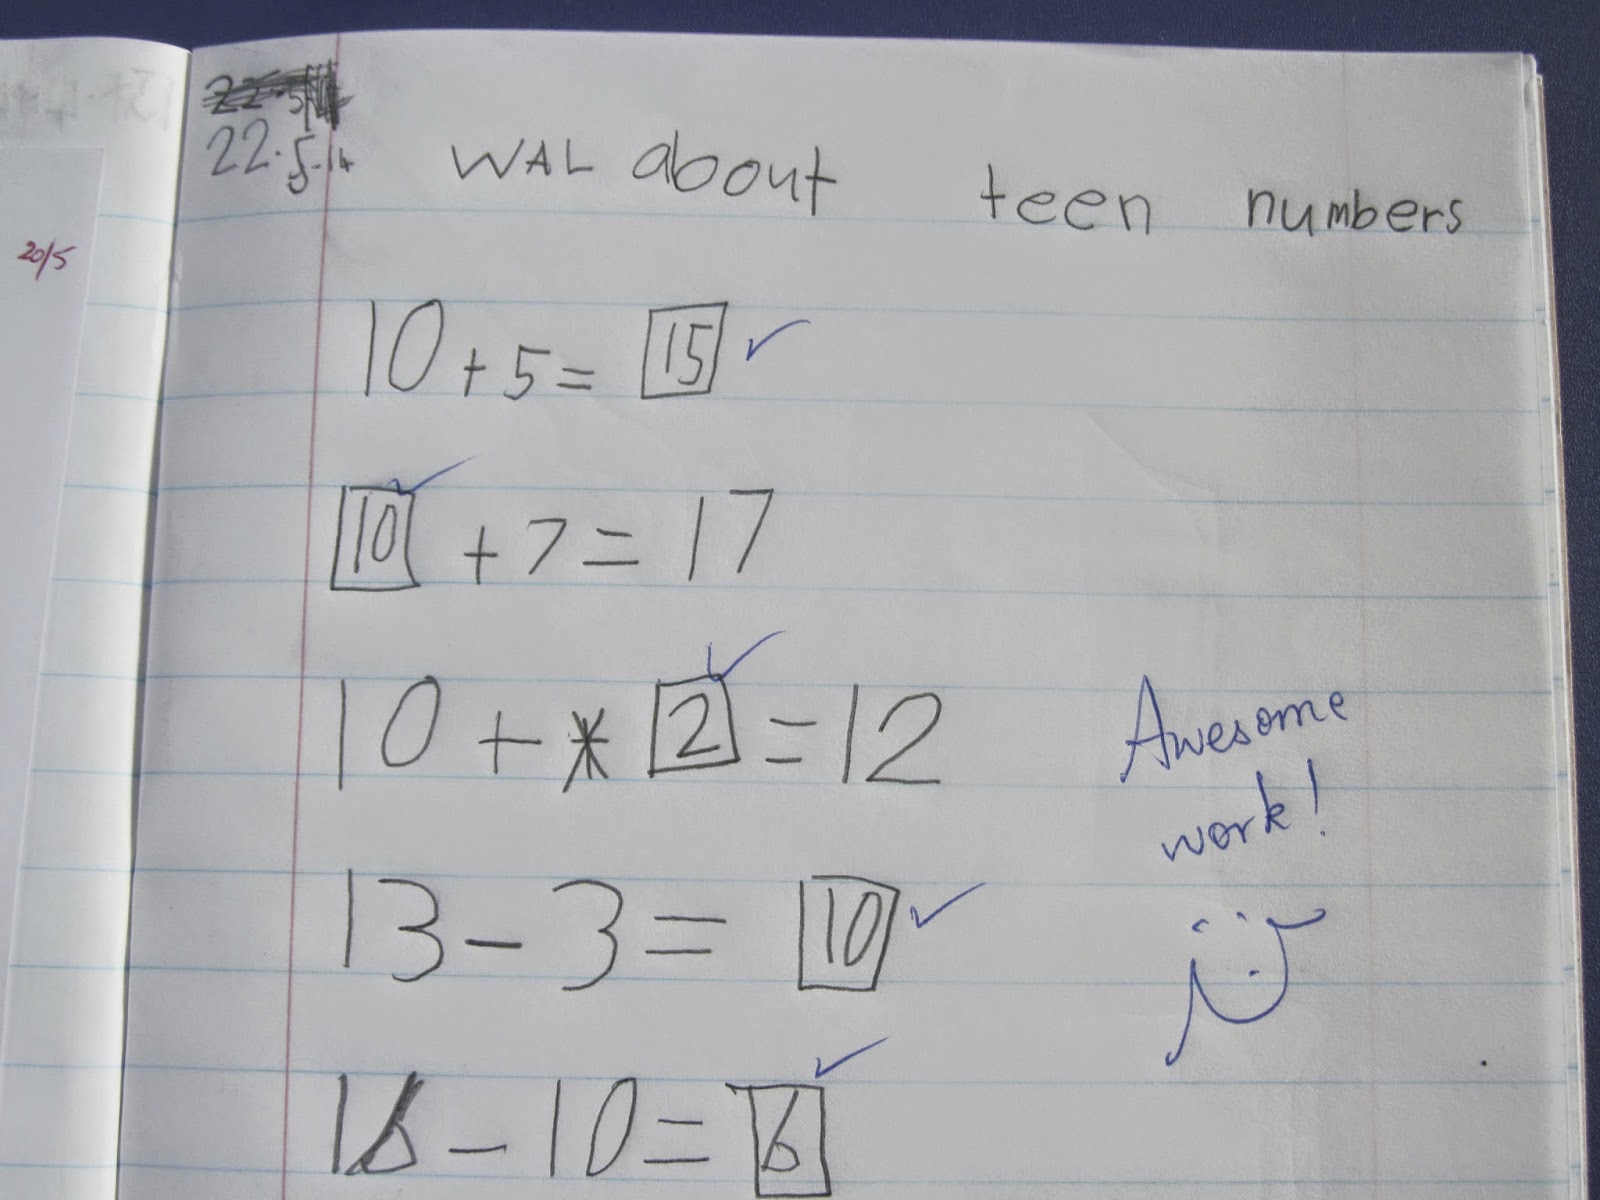 22.5.14
WAL about teen numbers
20/5
10 + 5 = 15
10 + 7 = 17
10 + 2 = 12
Awesome
work!
13 - 3 = 10
16 - 10 = 6